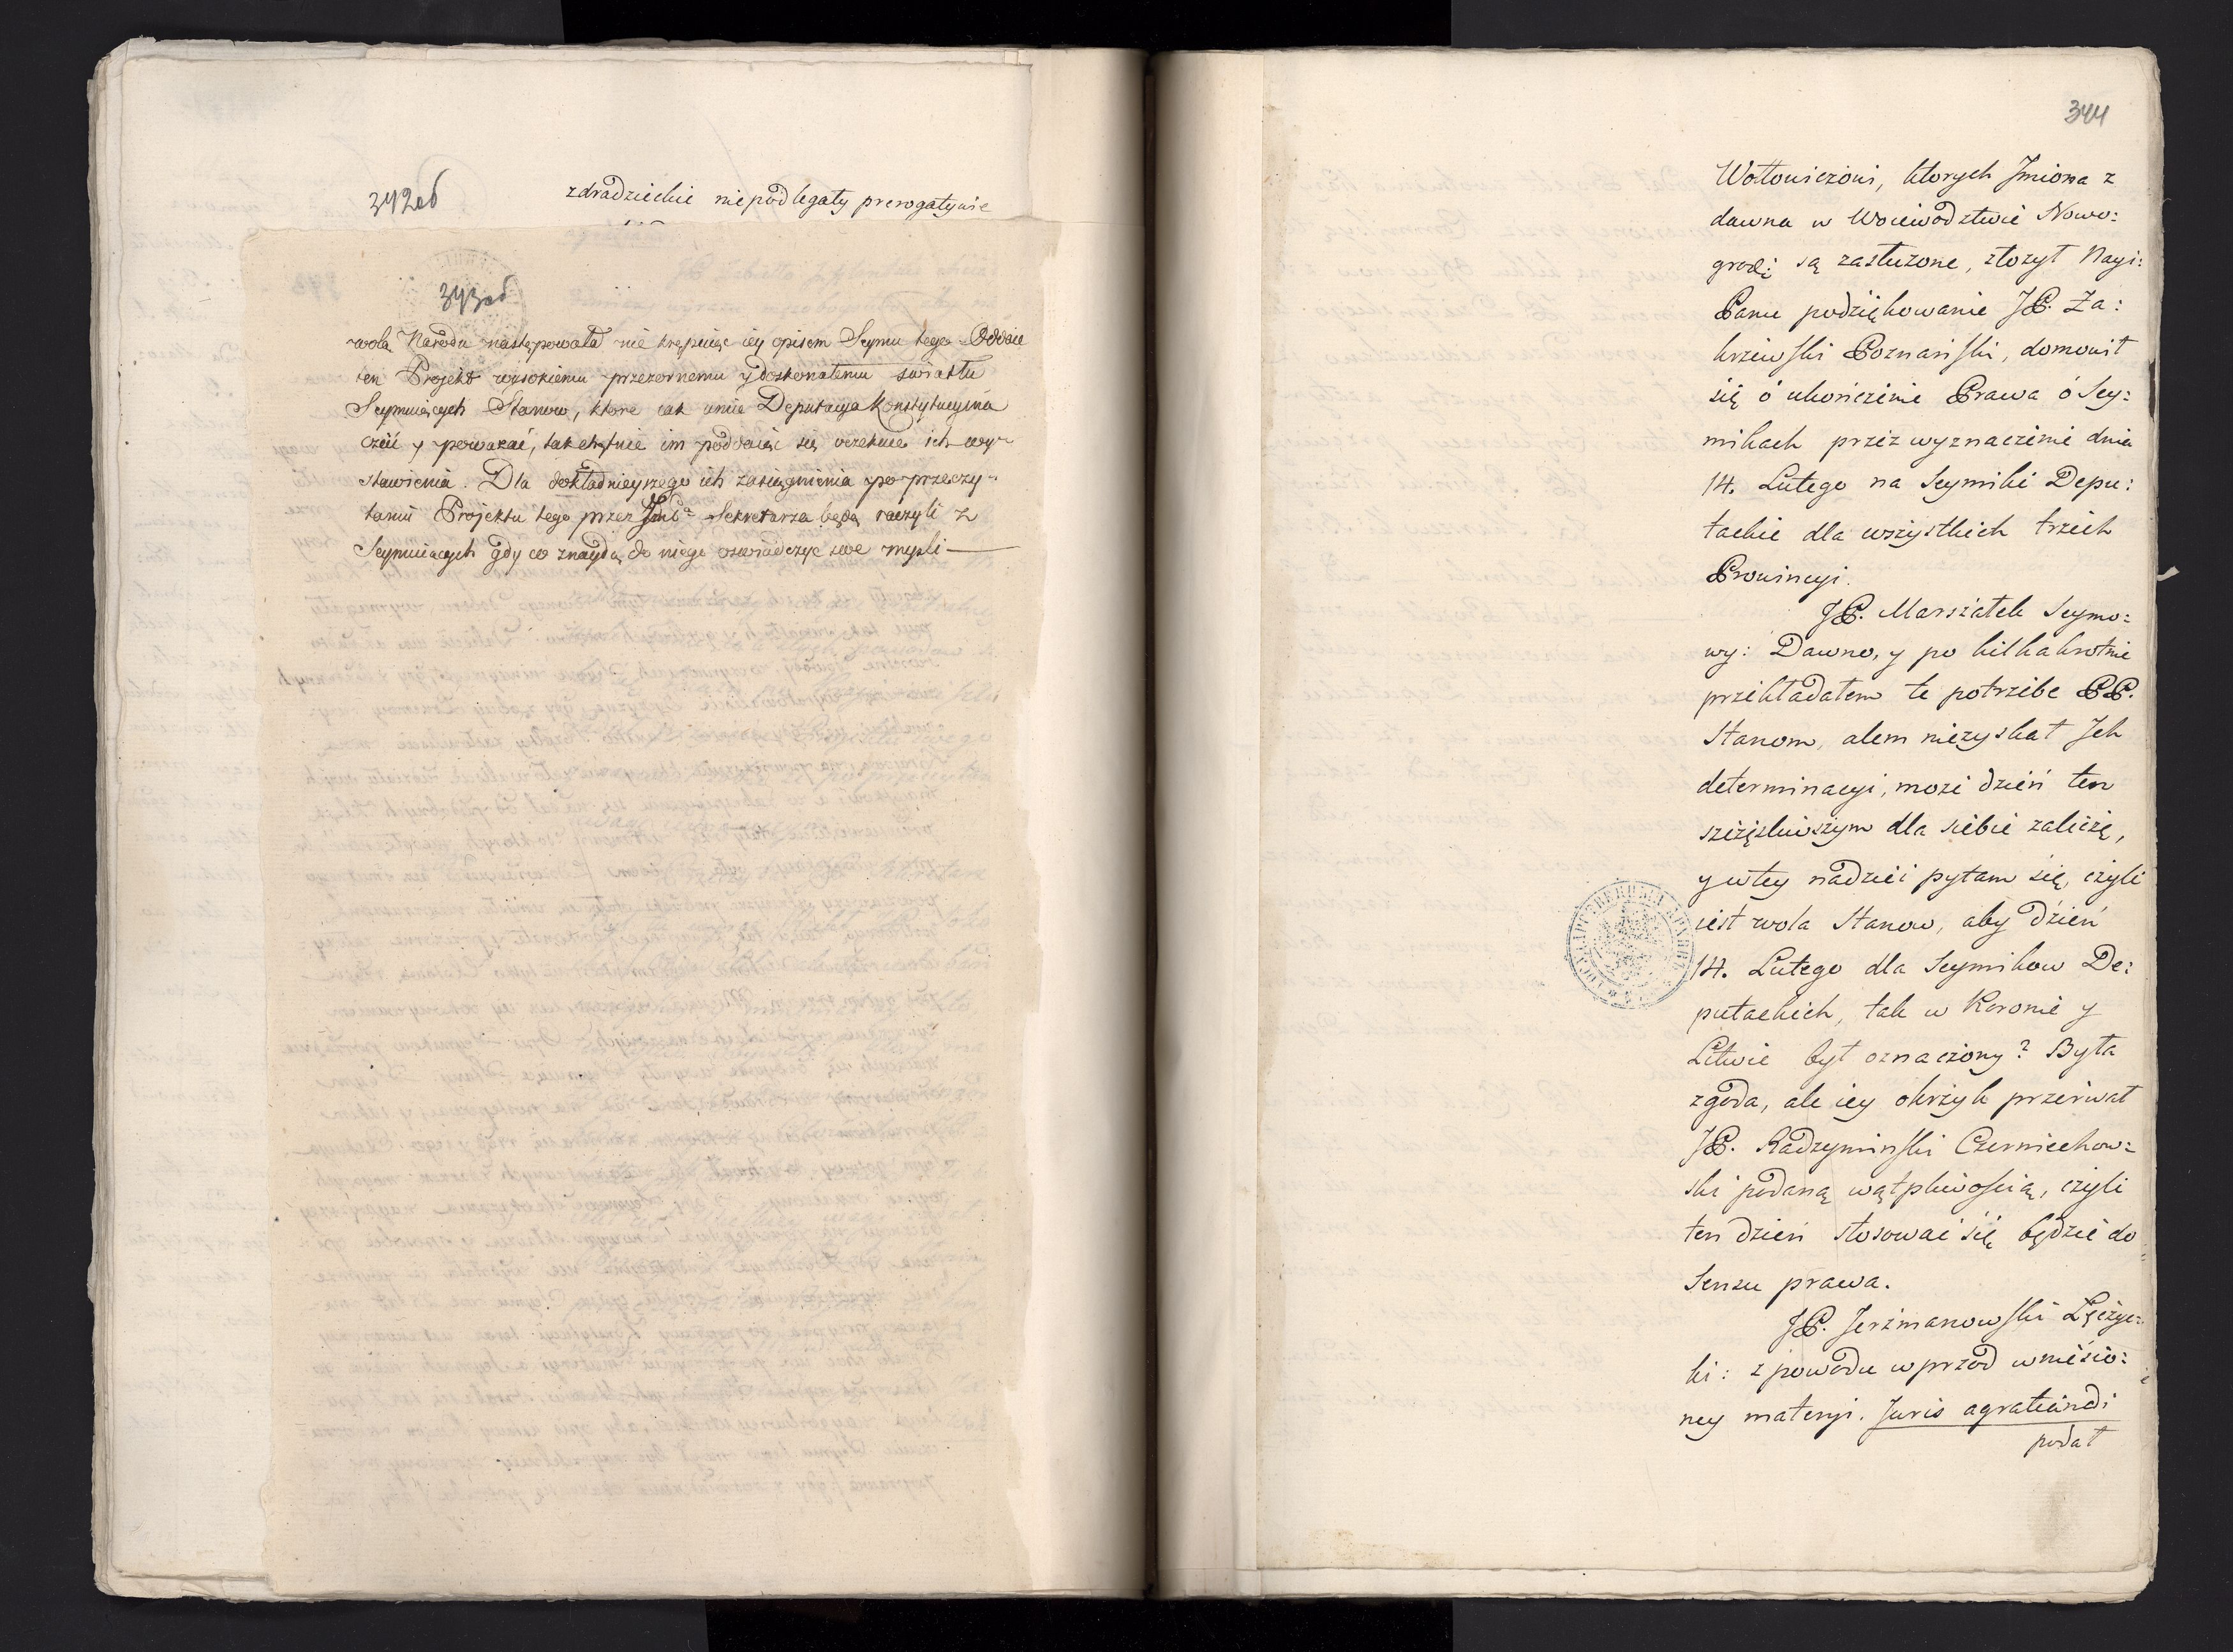 342об
zdradzieckie niepodlegały prerogatywie
343об
wolą Narodu następowała nie krępuiąc iey opisem Seymu tego. Oddaie
ten Projekt wysokiemu przezornemu y doskonałemu swiatłu
Seymuiących Stanow, ktore iak umie Deputacya Konstytucyina
czcić y poważać, tak chętnie im poddaiąc się oczekuie ich wy-
stawienia. Dla dokładnieyszego ich zasiągnienia po przeczy-
taniu Projektu tego przez Jmć Sekretarza będą raczyli z
Seymuiących gdy co znaydą do niego oswiadczyc swe mysli —
344
Wołowiczowi, ktorych Jmiona z
dawna w Woiewodztwie Nowo:
grod: są zasłużone, złożył Nayi:
Panu podziękowanie JP. Za:
krzewski Poznański, domowił
się ó ukończenie Prawa ó Sey:
mikach przez wyznaczenie dnia
14. Lutego na Seymiki Depu:
tackie dla wszystkich trzech
Prowincyi.
JP. Marszałek Seymo:
wy: Dawno, y po kilkakrotnie
przekładałem te potrzebe PP.
Stanom, alem niezyskał Jch
determinacyi, może dzień ten
szczęsliwszym dla siebie zaliczę,
y w tey nadziei pytam się, czyli
iest wola Stanow, aby dzień
14. Lutego dla Seymikow De:
putackich, tak w Koronie y
Litwie był oznaczony? Była
zgoda, ale iey okrzyk przerwał
JP. Radzyminski Czerniechow:
ski podaną wątpliwością, czyli
ten dzień stosować się będzie do
Sensu prawa.
JP. Jerzmanowski Łęczyc:
ki: z powodu wprzod wniesio:
ney materyi. Juris agratiandi
podał